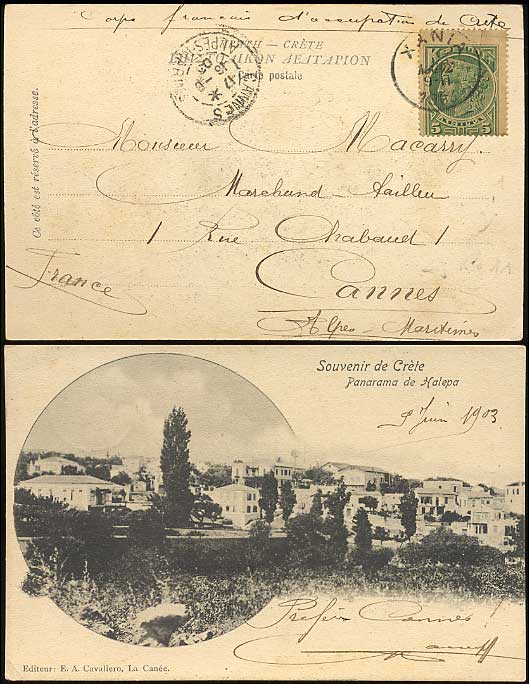 Corps français d'occupation de Crète
ΚΡΗΤΗ – CRÈTE
ΕΠΙΣΤΟΛΙΚΟΝ ΔΕΛΤΑΡΙΟΝ
Carte postale
ΧΑΝΙΑ
CANNES
ALPES-MARITIMES
Ce côté est réservé à l'adresse.
Monsieur Macarry
Marchand-Tailleur
1 Rue Chabaud 1
Cannes
France
Alpes-Maritimes
Souvenir de Crète
Panarama de Halepa
9 Juin 1903
Préfère Cannes!
Editeur: E. A. Cavaliero, La Canée.